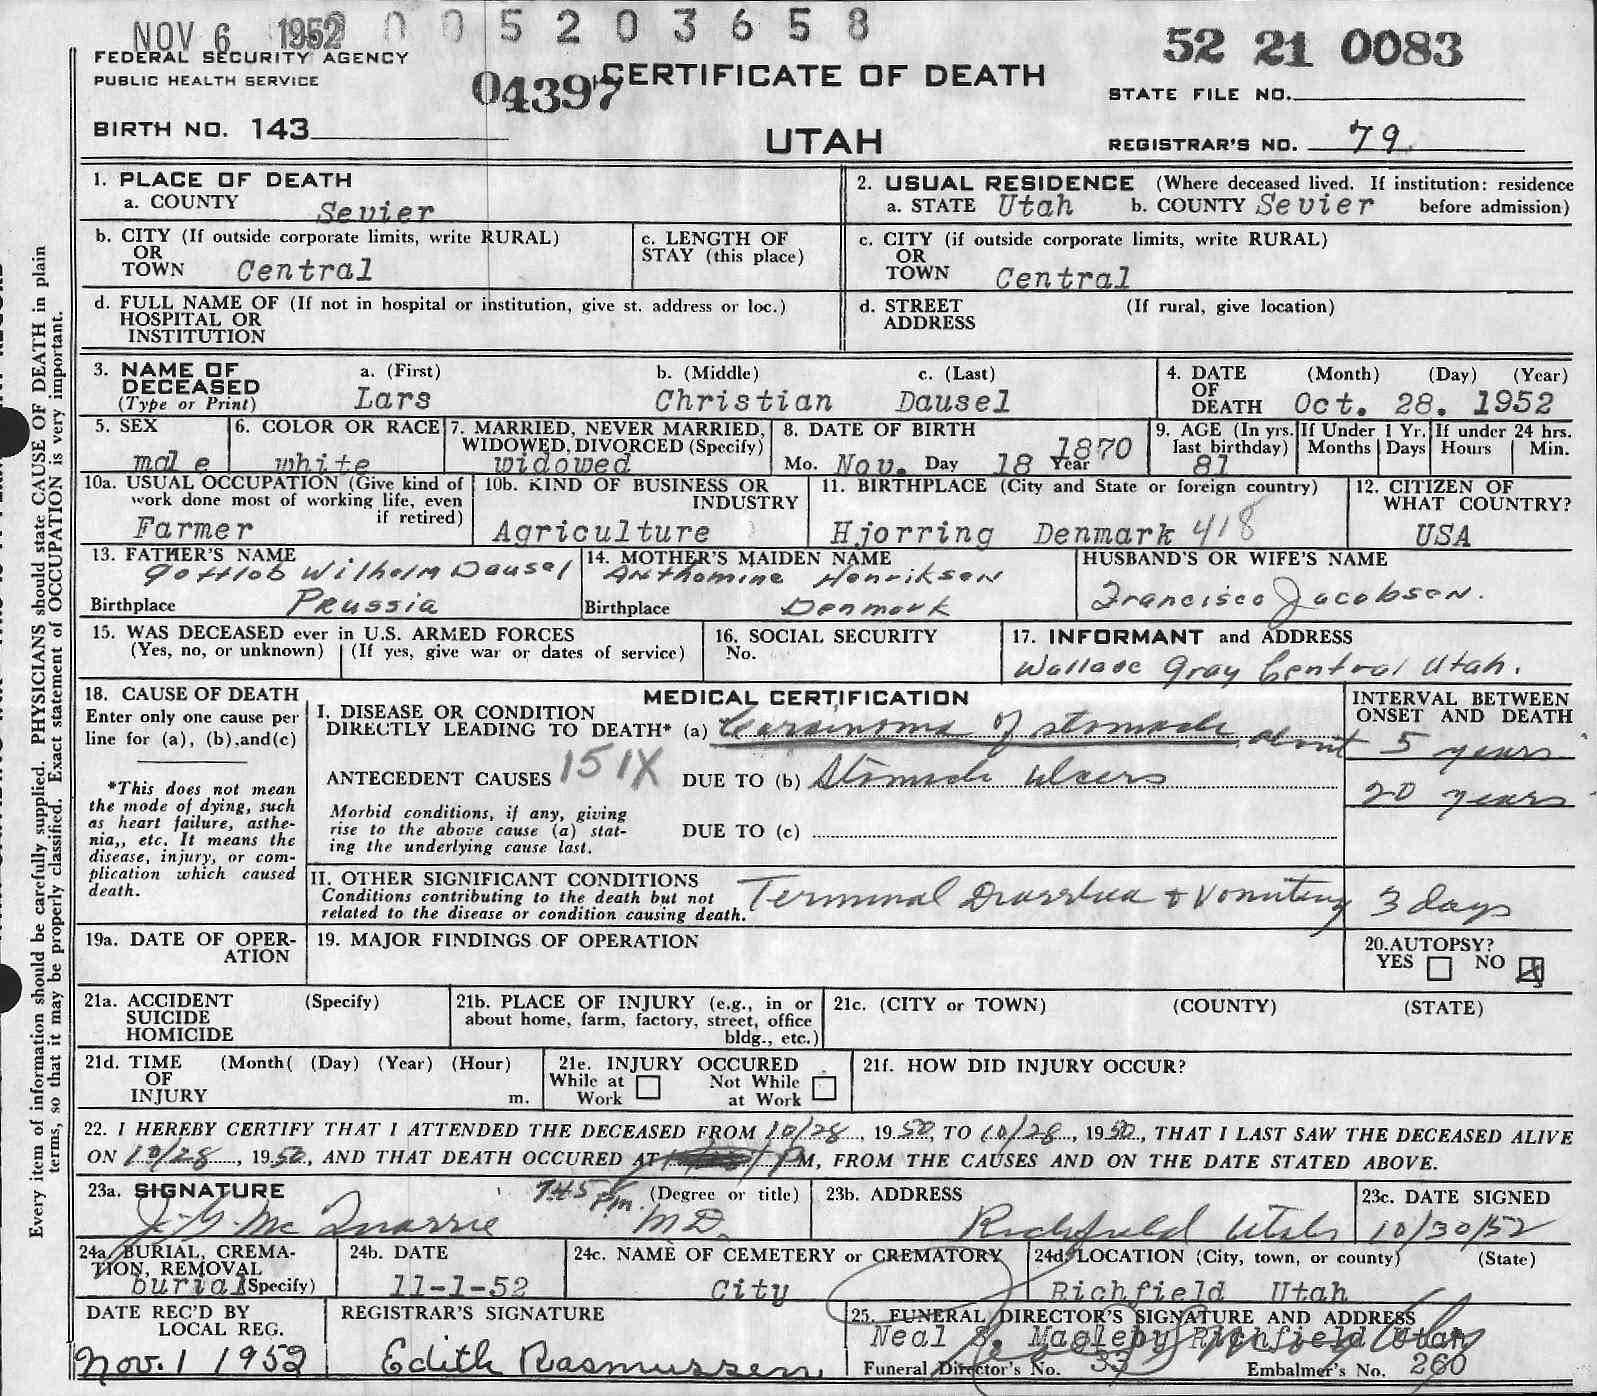 NOV 6 1952 0 0 5 2 0 3 6 5 8
52 21 0083
FEDERAL SECURITY AGENCY
PUBLIC HEALTH SERVICE
04397
CERTIFICATE OF DEATH
STATE FILE NO.
BIRTH NO. 143
UTAH
REGISTRAR'S NO. 79
Every item of information should be carefully supplied. PHYSICIANS should state CAUSE OF DEATH in plain
terms, so that it may be properly classified. Exact statement of OCCUPATION is very important.
1. PLACE OF DEATH
a. COUNTY Sevier
2. USUAL RESIDENCE (Where deceased lived. If institution: residence
a. STATE Utah b. COUNTY Sevier before admission)
b. CITY (If outside corporate limits, write RURAL)
OR
TOWN Central
c. LENGTH OF
STAY (this place)
c. CITY (if outside corporate limits, write RURAL)
OR
TOWN Central
d. FULL NAME OF (If not in hospital or institution, give st. address or loc.)
HOSPITAL OR
INSTITUTION
d. STREET (If rural, give location)
ADDRESS
3. NAME OF a. (First) b. (Middle) c. (Last)
DECEASED
(Type or Print) Lars Christian Dausel
4. DATE (Month) (Day) (Year)
OF
DEATH Oct. 28. 1952
5. SEX
male
6. COLOR OR RACE
white
7. MARRIED, NEVER MARRIED,
WIDOWED, DIVORCED (Specify)
widowed
8. DATE OF BIRTH
Mo. Nov. Day 18 Year 1870
9. AGE (In yrs.
last birthday)
81
If Under 1 Yr.
Months Days
If under 24 hrs.
Hours Min.
10a. USUAL OCCUPATION (Give kind of
work done most of working life, even
if retired)
Farmer
10b. KIND OF BUSINESS OR
INDUSTRY
Agriculture
11. BIRTHPLACE (City and State or foreign country)
Hjorring Denmark 418
12. CITIZEN OF
WHAT COUNTRY?
USA
13. FATHER'S NAME
Gottlob Wilhelm Dausel
Birthplace Prussia
14. MOTHER'S MAIDEN NAME
Anthomine Henriksen
Birthplace Denmark
HUSBAND'S OR WIFE'S NAME
Francisco Jacobsen.
15. WAS DECEASED ever in U.S. ARMED FORCES
(Yes, no, or unknown) (If yes, give war or dates of service)
16. SOCIAL SECURITY
No.
17. INFORMANT and ADDRESS
Wallace Gray Central Utah.
18. CAUSE OF DEATH
Enter only one cause per
line for (a), (b),and(c)
*This does not mean
the mode of dying, such
as heart failure, asthe-
nia,, etc. It means the
disease, injury, or com-
plication which caused
death.
MEDICAL CERTIFICATION
I. DISEASE OR CONDITION
DIRECTLY LEADING TO DEATH* (a) Carcinoma of stomach about
ANTECEDENT CAUSES 151X DUE TO (b) Stomach Ulcers
Morbid conditions, if any, giving
rise to the above cause (a) stat-
ing the underlying cause last.
DUE TO (c)
INTERVAL BETWEEN
ONSET AND DEATH
5 years
20 years
II. OTHER SIGNIFICANT CONDITIONS
Conditions contributing to the death but not
related to the disease or condition causing death.
Terminal Diarrhea + Vomiting 3 days
19a. DATE OF OPER-
ATION
19. MAJOR FINDINGS OF OPERATION
20.AUTOPSY?
YES NO X
21a. ACCIDENT (Specify)
SUICIDE
HOMICIDE
21b. PLACE OF INJURY (e.g., in or
about home, farm, factory, street, office
bldg., etc.)
21c. (CITY or TOWN) (COUNTY) (STATE)
21d. TIME (Month( (Day) (Year) (Hour)
OF
INJURY m.
21e. INJURY OCCURED
While at Not While
Work at Work
21f. HOW DID INJURY OCCUR?
22. I HEREBY CERTIFY THAT I ATTENDED THE DECEASED FROM 10/28, 1950, TO 10/28, 1950, THAT I LAST SAW THE DECEASED ALIVE
ON 10/28, 1950, AND THAT DEATH OCCURED AT PM, FROM THE CAUSES AND ON THE DATE STATED ABOVE.
7:45 Pm.
23a. SIGNATURE (Degree or title)
J. G. McQuarrie M.D.
23b. ADDRESS
Richfield Utah
23c. DATE SIGNED
10/30/52
24a. BURIAL, CREMA-
TION, REMOVAL
burial (Specify)
24b. DATE
11-1-52
24c. NAME OF CEMETERY or CREMATORY
City
24d. LOCATION (City, town, or county) (State)
Richfield Utah
DATE REC'D BY
LOCAL REG.
Nov. 1 1952
REGISTRAR'S SIGNATURE
Edith Rasmussen
25. FUNERAL DIRECTOR'S SIGNATURE AND ADDRESS
Neal S. Magleby Richfield Utah
Funeral Director's No. 33 Embalmer's No. 260